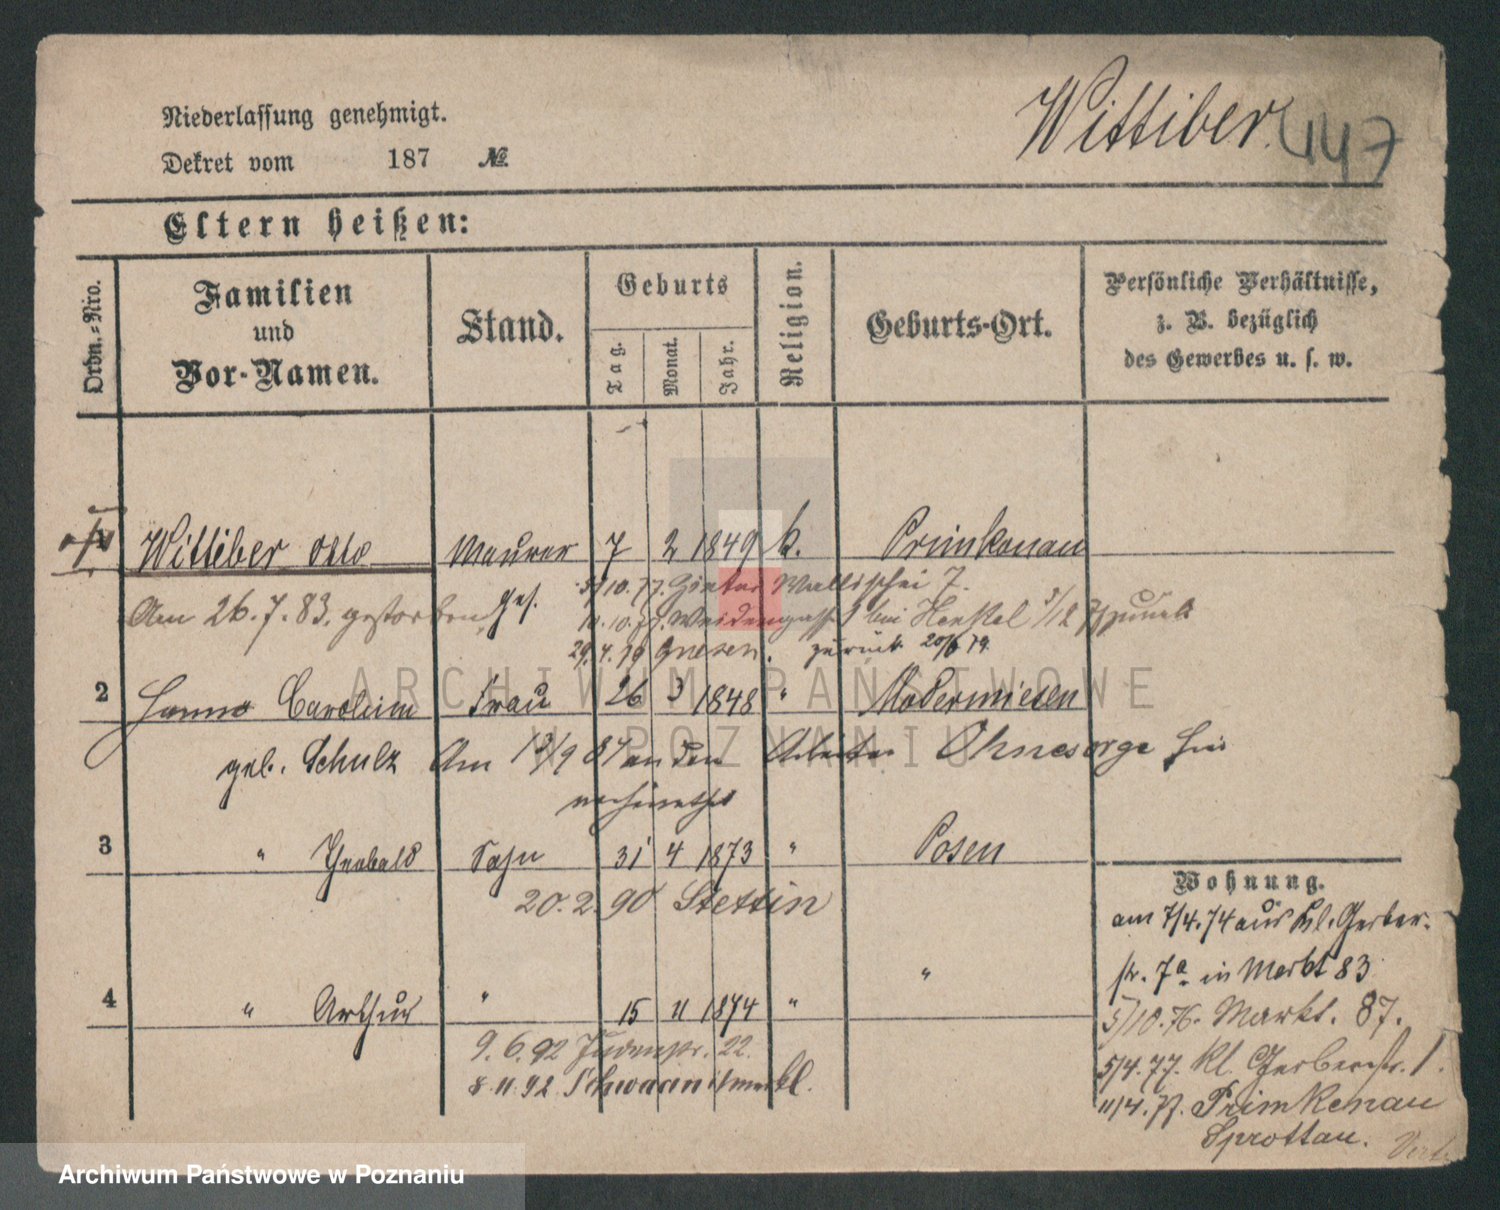 Niederlassung genehmigt.
Dekret vom 187 №
Wittiber.
447
Eltern heißen:
Ordn.-Nro.
Familien und Vor-Namen.
Stand.
Geburts
Tag.
Monat.
Jahr.
Religion.
Geburts-Ort.
Persönliche Verhältnisse,
z. B. bezüglich
des Gewerbes u. s. w.
1 Wittiber Otto Maurer 7 2 1849 k. Primkenau
Am 26.7.83. gestorben
Ges.
5/10.77. Hinter Wallischei 7.
11.10.77. Weidengasse bei Henkel 3/12 77 zurück
29.4.79 Gnesen. zurück 20/6 79.
2 Hanna Carolina Frau 26 3 1848 " Modermiesen
geb. Schulz Am 13/9 84 an den Arbeiter Ohnesorge hier
verheirathet
3 " Theobald Sohn 31 4 1873 " Posen
20.2.90 Stettin
4 " Arthur " 15 11 1874 " "
9.6.92 Judenstr. 22.
8.11.92 Schwaan i/meckl.
Wohnung.
am 7/4.74 aus Kl. Gerber-
str. 7a in Markt 83
5/10.76. Markt. 87.
5/4.77. Kl. Gerberstr. 1.
11/4.77. Primkenau
Sprottau.
ARCHIWUM PAŃSTWOWE
W POZNANIU
Archiwum Państwowe w Poznaniu